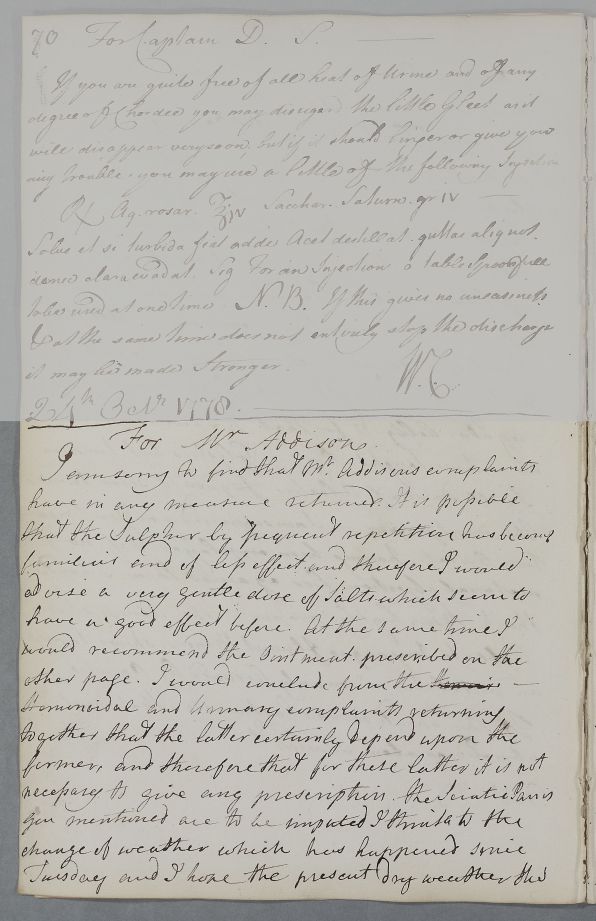 70 For Captain D. S.
If you are quite free of all heat of Urine and of any
degree of Chordee you may disregard the little Gleet as it
will disappear very soon, but if it should linger or give you
any trouble, you may use a little of the following Injection
℞ Aq. rosar. ℥iv Sacchar. Saturn. gr iv
Solve et si turbida fiat adde Acet destillat. guttas aliquot.
donec clara evadat. Sig For an Injection a table Spoonfull
to be used at one time N.B. If this gives no uneasiness
& at the same time does not entirely stop the discharge
it may be made Stronger. W.C.
24th 1778.
For Mr Addison.
I am sorry to find that Mr. Addisons complaints
have in any measure returned. It is possible
that the Sulphur by frequent repetition has become
familiar and of less effect and therefore I would
advise a very gentle dose of Salts which seem to
have a good effect before. At the same time I
would recommend the Ointment prescribed on the
other page. I would conclude from the
Hemorroidal and Urinary complaints returning
together that the latter certainly Depend upon the
former, and therefore that for these latter it is not
necessary to give any prescription. the Sciatic Pains
you mentioned are to be imputed I think to the
change of weather which has happened since
Tuesday and I hope the present dry weather this